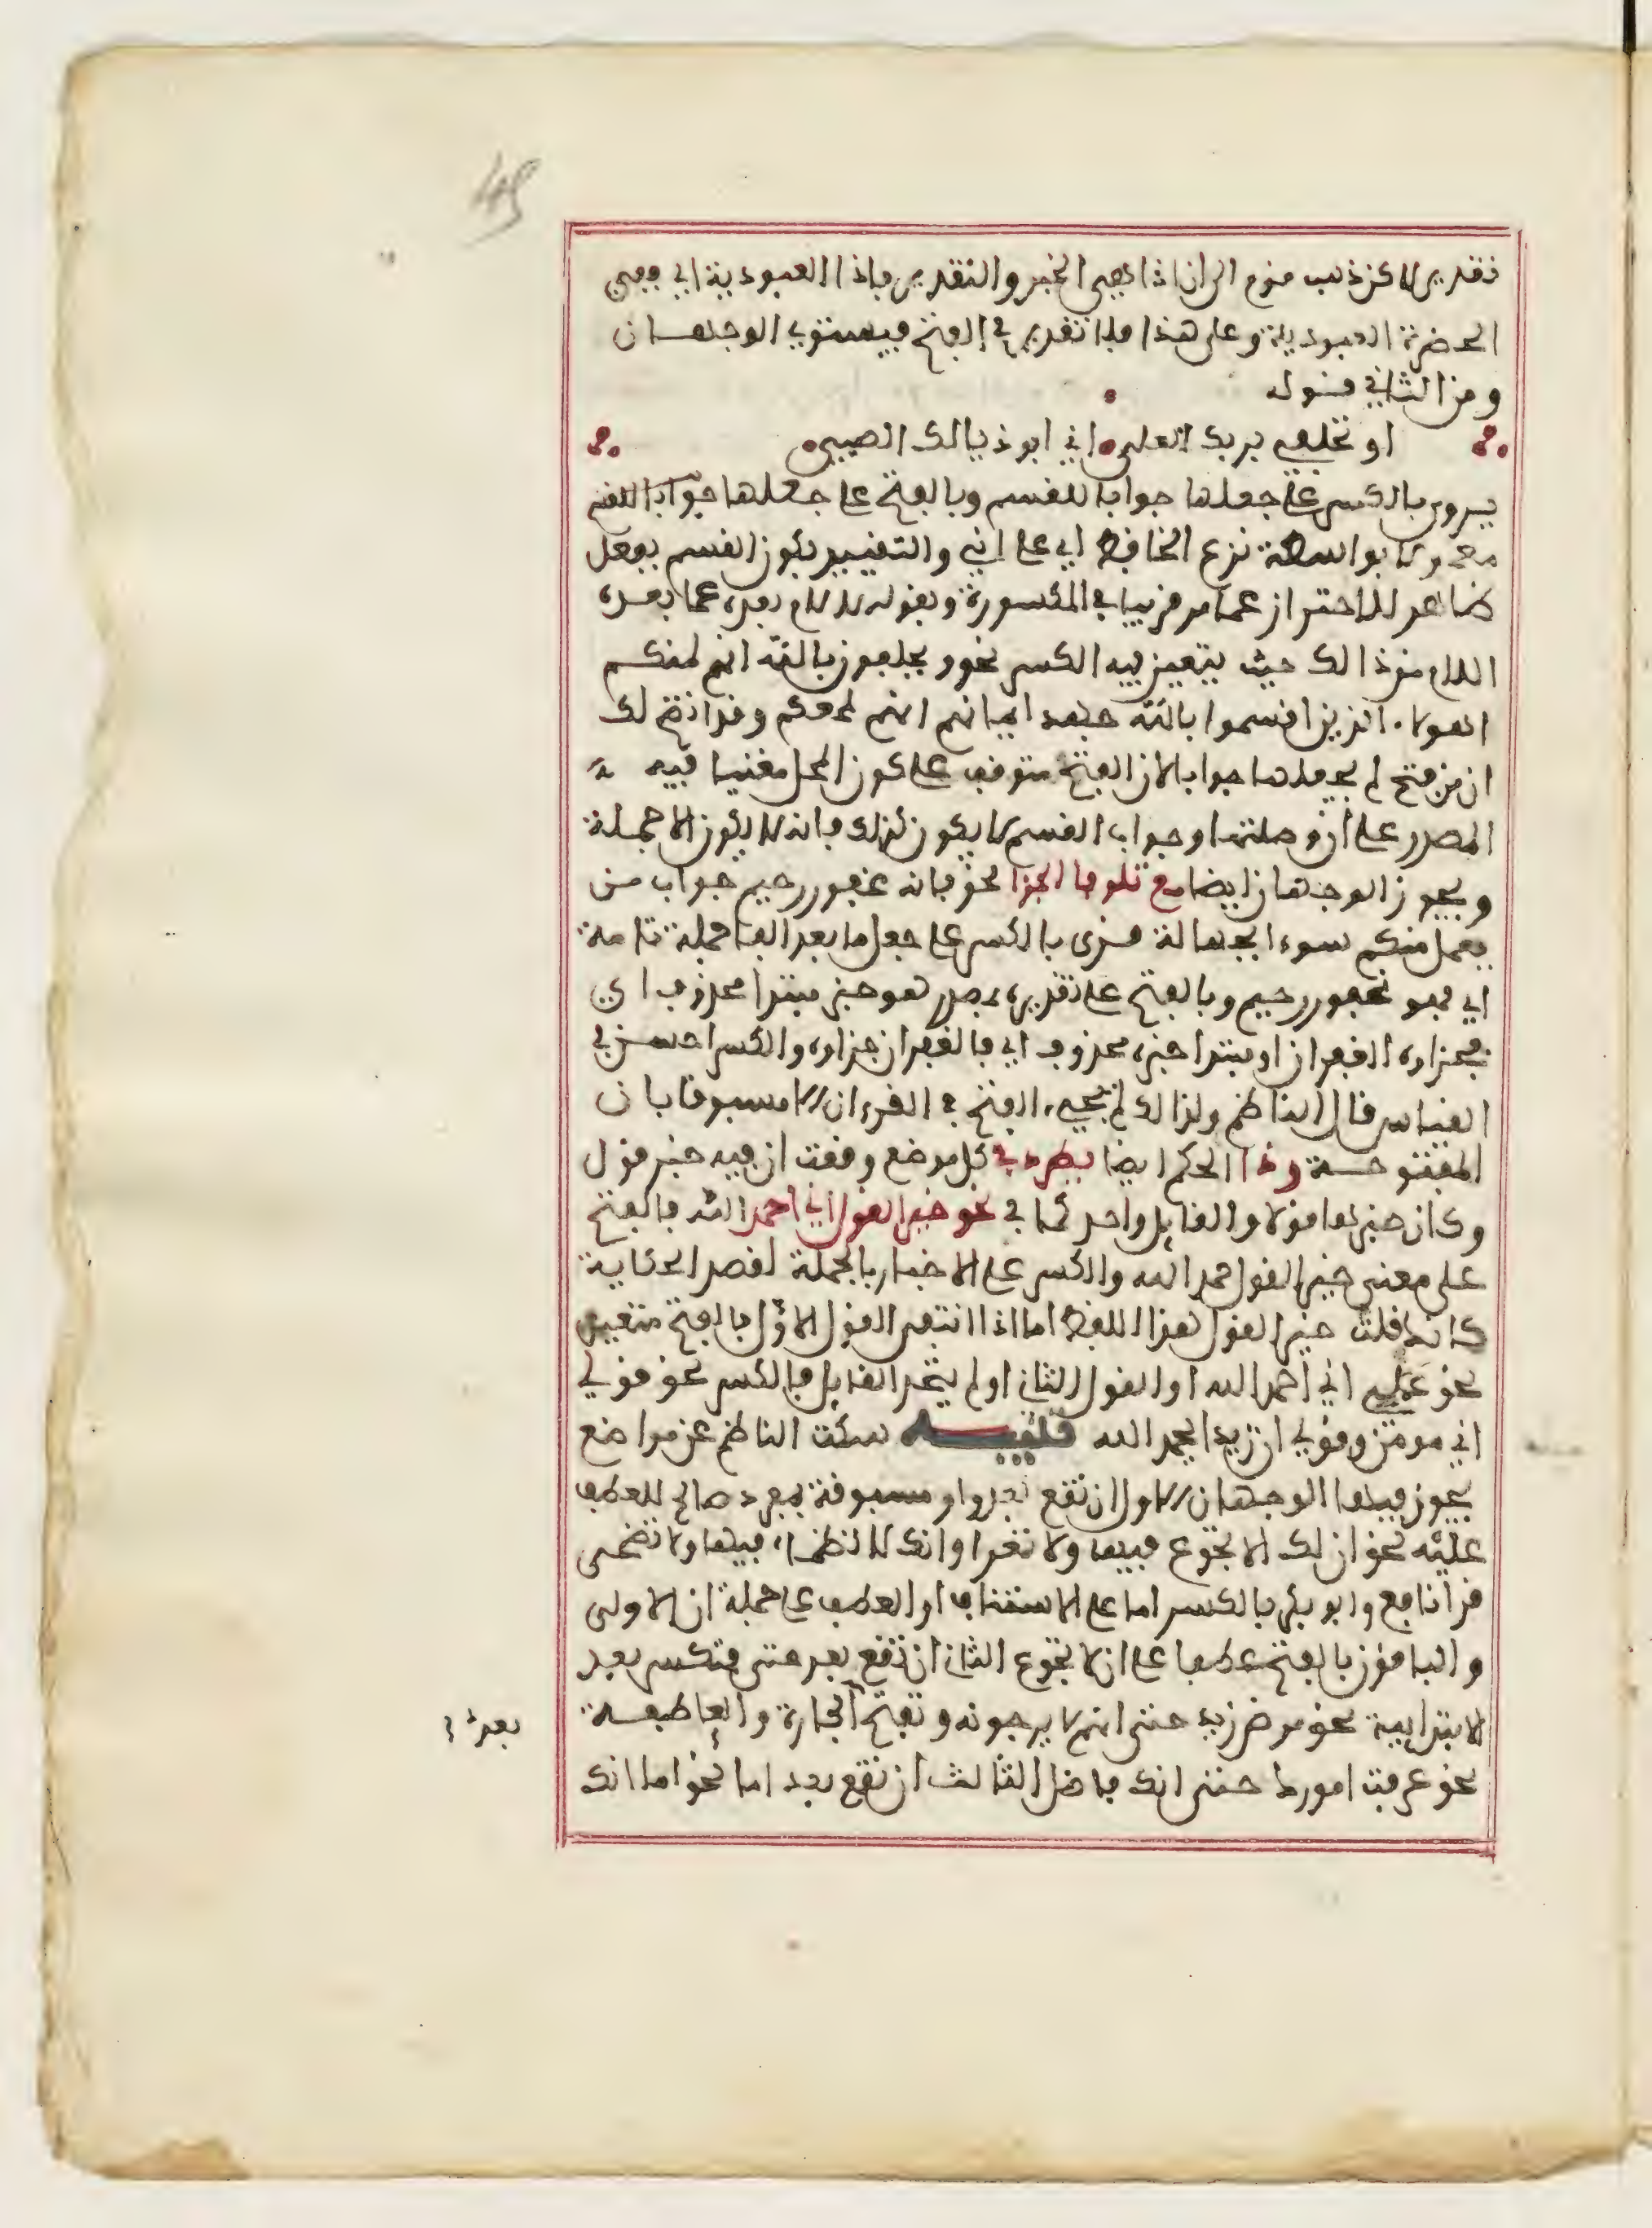 45
تقدير لاكن ذهب قوم الى ان اذا هي الخبر والتقدير فاذا العبودية اي ففي
الحضرة العبودية وعلى هذا فلا تقدير في الفتح فيستوي الوجهان
ومن الثاني قوله
او تحلفي بربك العلي اني ابو ذيالك الصبي
يروى بالكسر على جعلها جوابا للقسم وبالفتح على جعلها جوابا للقسم
معمولا بواسطة نزع الخافض اي على اني والتقييد بكون القسم بفعل
ظاهر للاحتراز عما مر قريبا في المكسورة وبقوله لا لام بعده عما بعده
اللام من ذالك حيث يتعين فيه الكسر نحو ويحلفون بالله انهم لمنكم
اهولاء الذين اقسموا بالله جهد ايمانهم انهم لمعكم وقد اتضح لك
ان من فتح لم يجعلها جوابا لان الفتح متوقف على كون المحل مغنيا فيه
المصدر على ان وصلتها وجواب القسم لا يكون كذلك فانه لا يكون الا جملة
ويجوز الوجهان ايضا مع تلو فا الجزا نحو فانه غفور رحيم جواب من
يعمل منكم سوءا بجهالة قرئ بالكسر على جعل ما بعد الفا جملة تامة
اي فهو غفور رحيم وبالفتح على تقديره بمصدر هو خبر مبتدا محذوف اي
فجزاوه الغفران او مبتدا خبره محذوف اي فالغفران جزاوه والكسر احسن في
القياس قال الناظم ولذالك لم يجيء الفتح في القرءان الا مسبوقا بان
المفتوحة وذا الحكم ايضا يطرد في كل موضع وقعت ان فيه خبر قول
وكان خبرها قولا والقايل واحد كما في نحو خير القول اني احمد الله فالفتح
على معنى خير القول حمد الله والكسر على الاخبار بالجملة لقصد الحكاية
كانك قلت خير القول هذا اللفظ اما اذا انتفى القول الاول فالفتح متعين
نحو عملي اني احمد الله او القول الثاني او لم يتحد القايل فالكسر نحو قولي
اني مومن وقولي ان زيدا يحمد الله تنبيه سكت الناظم عن مواضع
يجوز فيها الوجهان الاول ان تقع بعد واو مسبوقة بمفرد صالح للعطف
عليه نحو ان لك الا تجوع فيها ولا تعرا وانك لا تظما فيها ولا تضحى
قرا نافع وابو بكر بالكسر اما على الاستيناف او العطف على جملة ان الاولى
والباقون بالفتح عطفا على ان لا تجوع الثاني ان تقع بعد حتى فتكسر بعد
الابتدايية نحو مرض زيد حتى انهم لا يرجونه وتفتح الجارة والعاطفة
بعد
نحو عرفت امورك حتى انك فاضل الثالث ان تقع بعد اما نحو اما انك